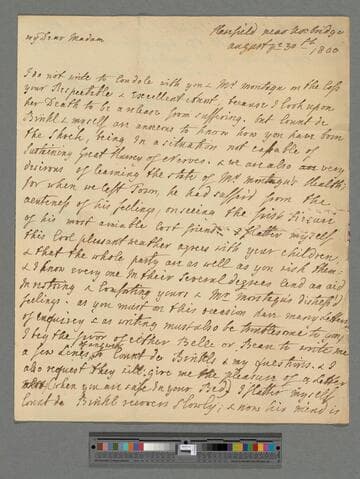 Harefield near Uxbridge
August ye 30th 1800
my Dear Madam
I do not write to Condole with you & Mr montagu on the Loss
your Respectable & Excellent Aunt, because I look upon
her Death to be a release from suffering. but Count de
Brühl & myself are anxious to know how you have born
the Shock, being in a situation not capable of
Sustaining Great Hurry of nerves. & we are also very
desirous of learning the state of Mr montagu's Health;
for when we left Town, he had suffer'd from the
acuteness of his feelings, on seeing the
of his most amiable lost friend. I flatter myself
this Cool pleasant weather agrees with your children,
& that the whole party are as well as you wish them:
& I know every one in their several degrees lend an aid
in nothing & Comforting yours & Mr Montagu's distress'd
feelings: as you must on this occasion have many Letters
of enquirey & as writing must also be troublesome to you,
I beg the favor of either Belle or Bean to write me
a few Lines to Count de Brühls & my questions. & I
also request they will give me the pleasure of a Letter
when you are safe in your Bed. I flatter myself
Count de Brühl recovers slowly; & now his mind is